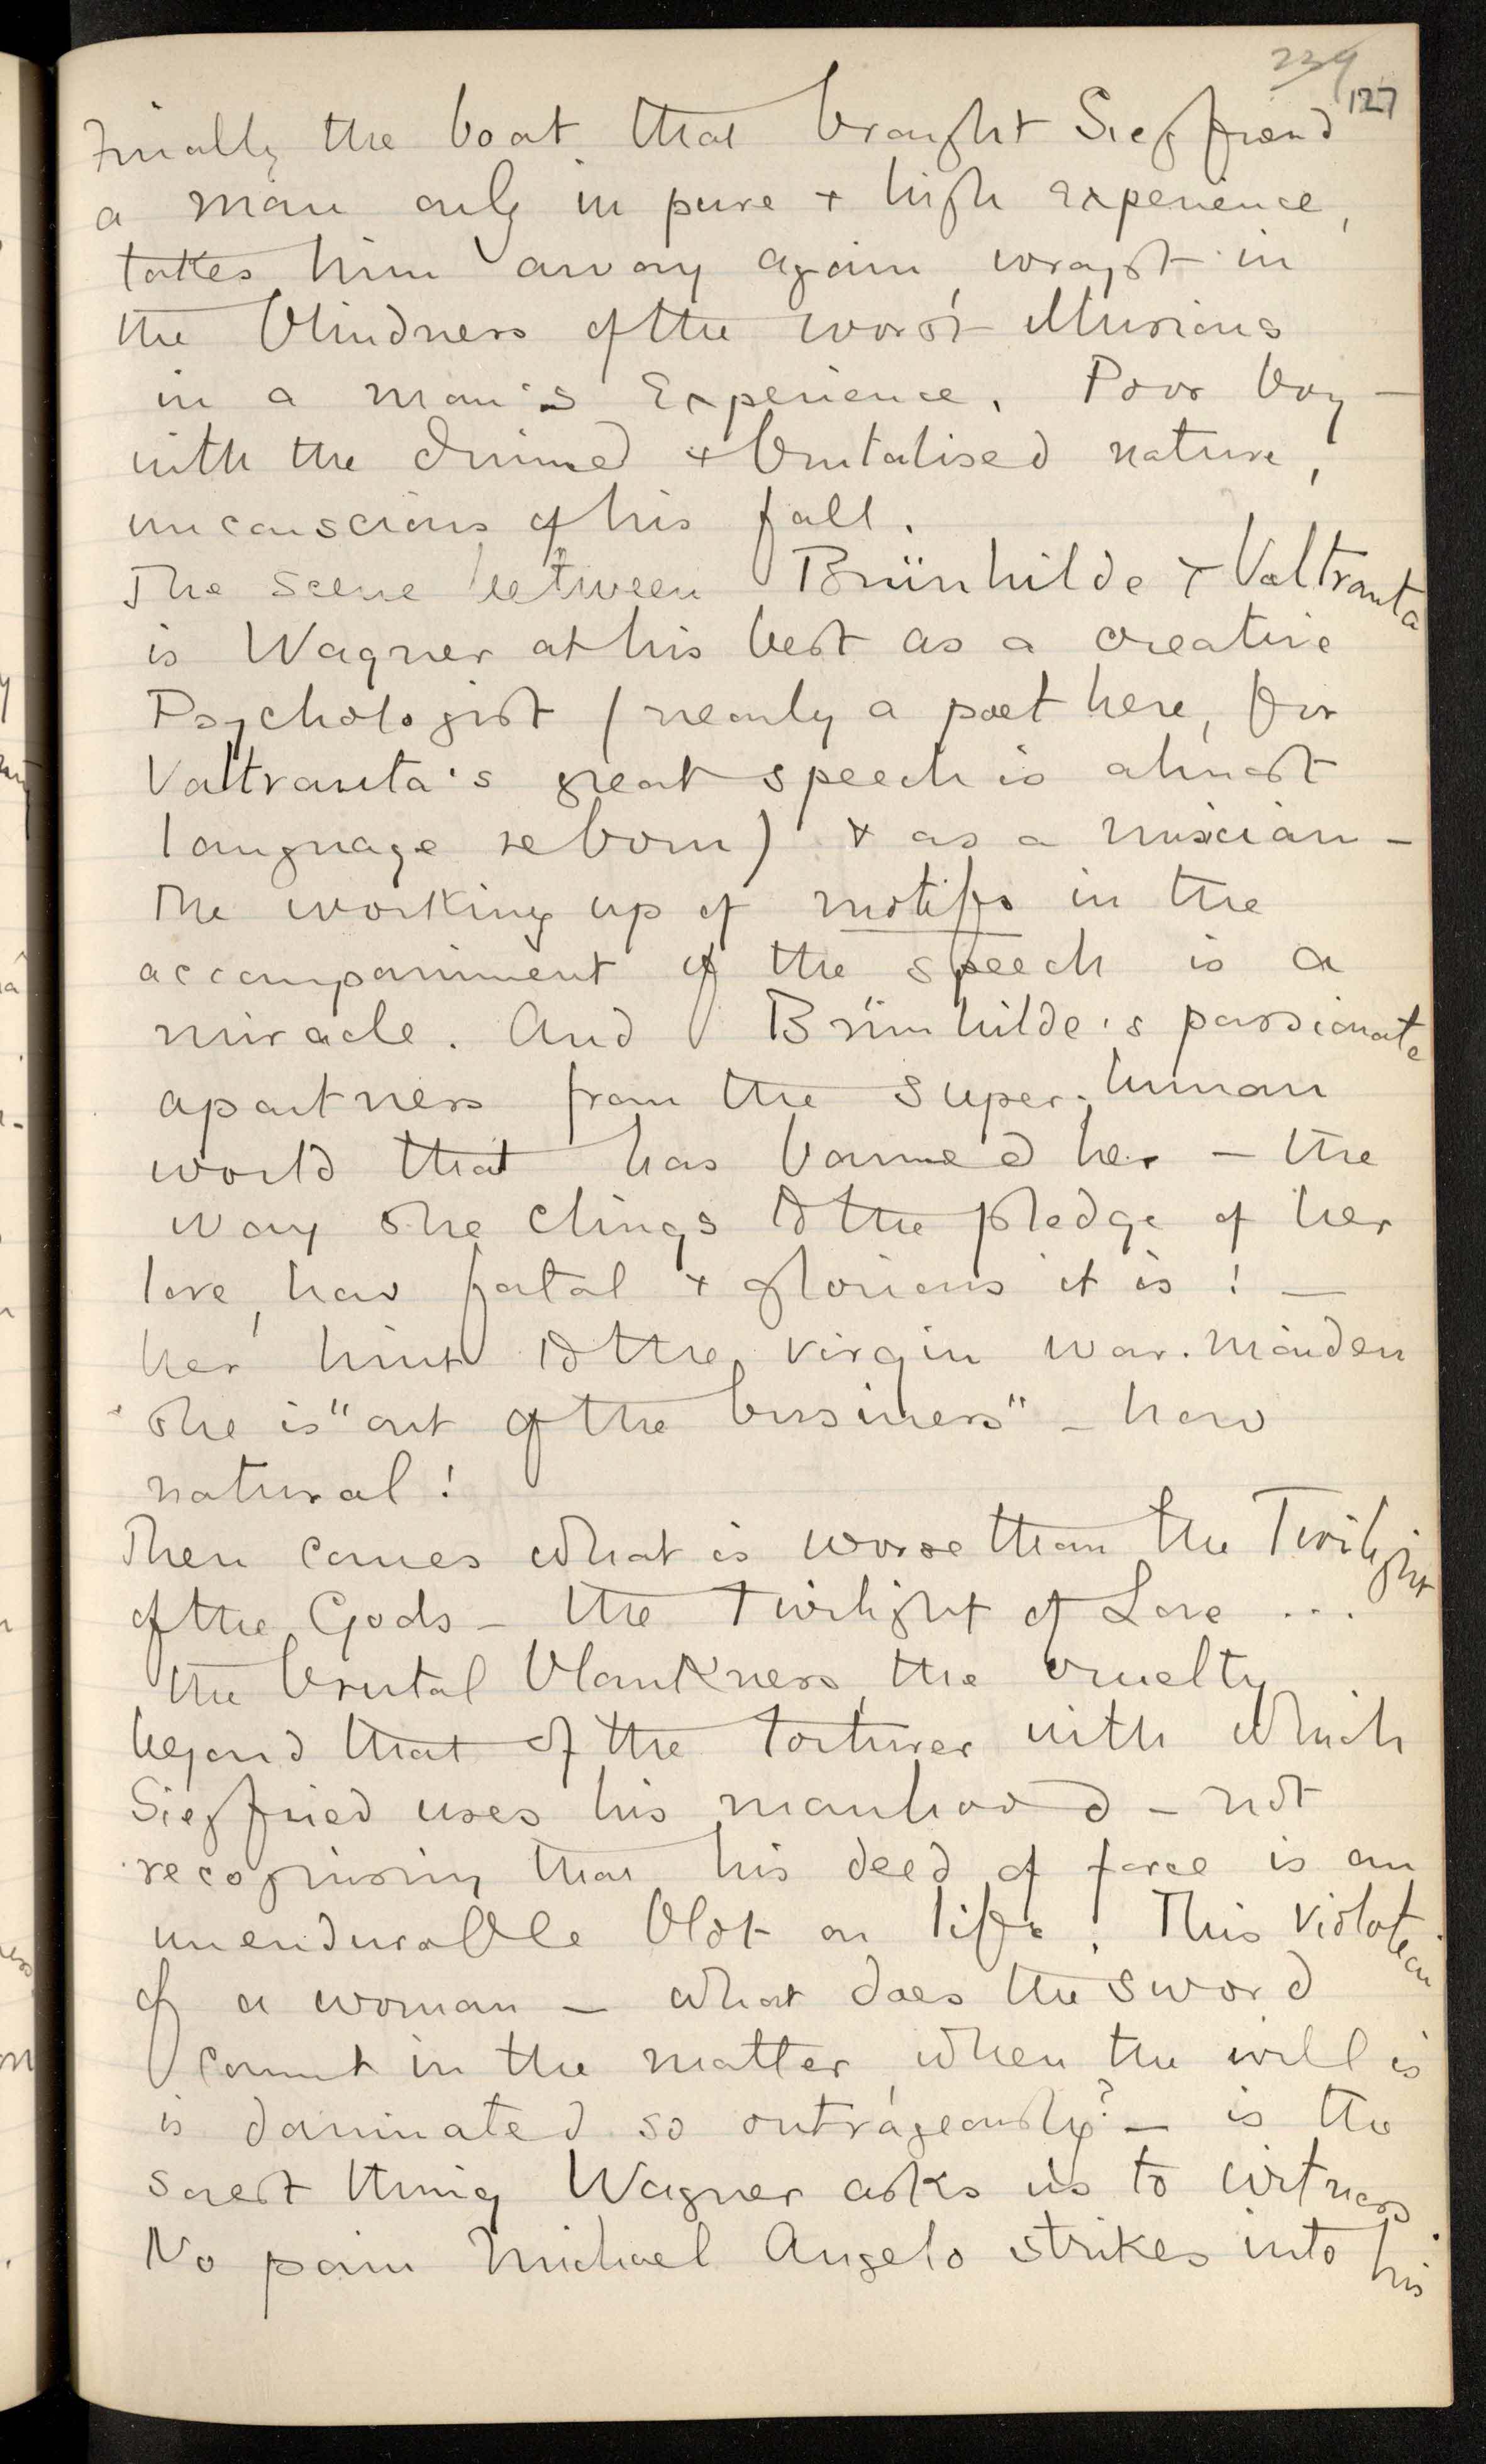 239
127
Finally the boat that brought Siegfried
a man only in pure + high experience,
takes him away again, wrapt in
the blindness of the worst illusions
in a man's Experience. Poor boy —
with the dimmed + brutalised nature,
unconscious of his fall.
The scene between Brünhilde + Valtrauta
is Wagner at his best as a creative
Psychologist (nearly a poet here, for
Valtrauta's great speech is almost
language reborn) + as a musician —
The working up of motifs in the
accompaniment of the speech is a
miracle. And Brünhilde's passionate
apartness from the super-human
world that has banned her — the
way she clings to the pledge of her
love, how fatal + glorious it is! —
her hint to the virgin war-maiden
she is "out of the business" — how
natural!
Then comes what is worse than the Twilight
of the Gods — the Twilight of Love ...
the brutal blankness, the cruelty
beyond that of the torturer with which
Siegfried uses his manhood — not
recognising that his deed of force is an
unendurable blot on life! This violation
of a woman — what does the sword
count in the matter, when the will is
is dominated so outrageously? — is the
sorest thing Wagner asks us to witness.
No pain Michael Angelo strikes into his